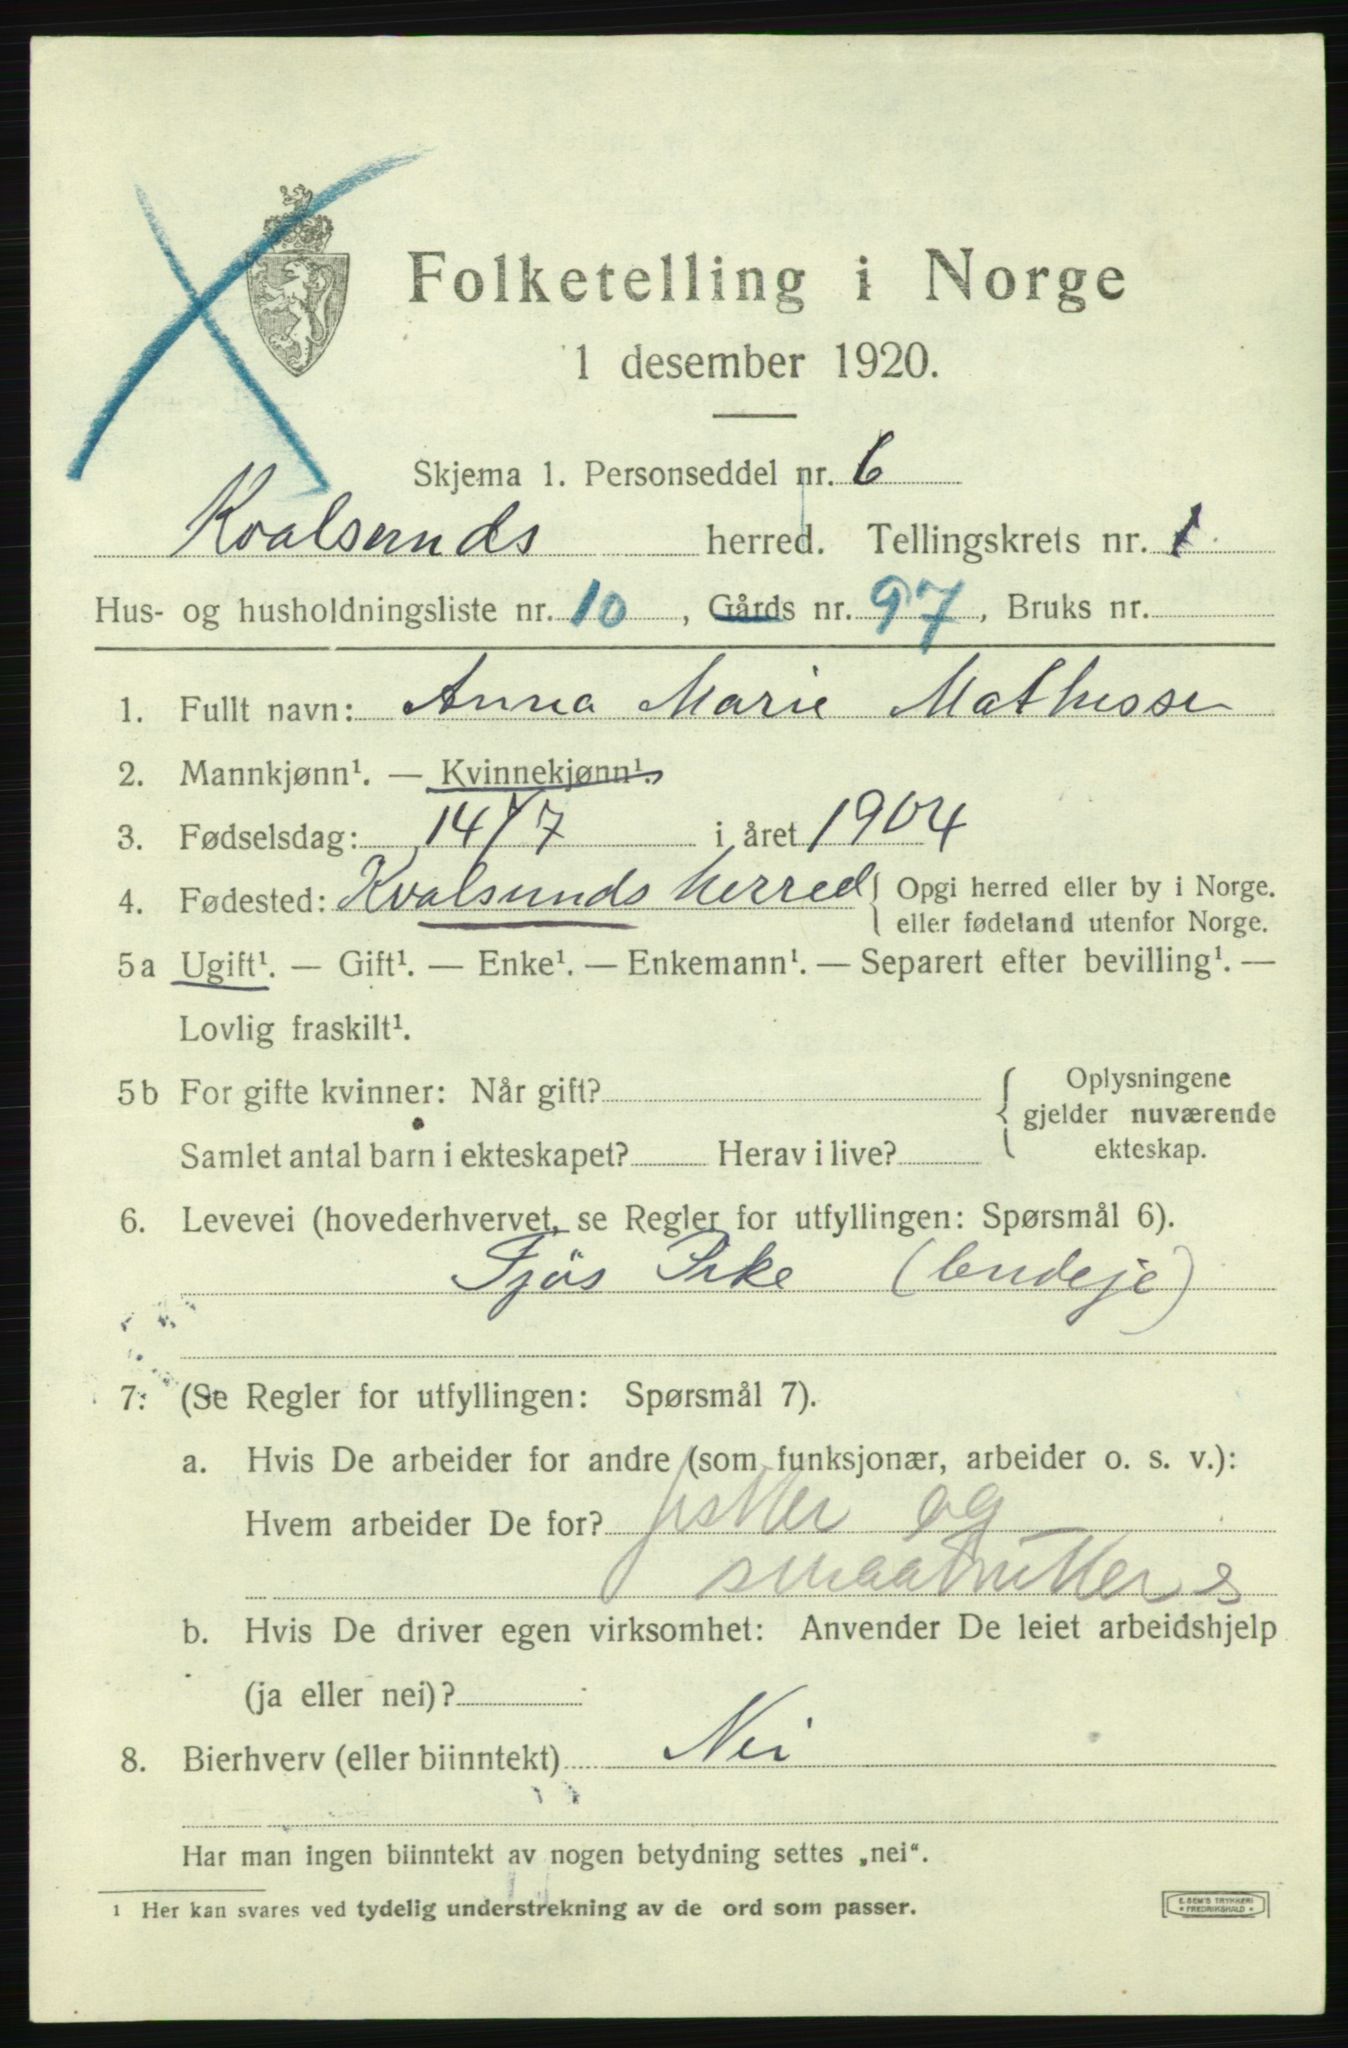 Folketelling i Norge
1 desember 1920.
Skjema 1. Personseddel nr. 6
Kvalsunds herred. Tellingskrets nr. 1
Hus- og husholdningsliste nr. 10, Gårds nr. 97, Bruks nr.
1. Fullt navn: Anna Marie Mathissen
2. Mannkjønn¹. — Kvinnekjønn¹.
3. Fødselsdag: 14/7 i året 1904
4. Fødested: Kvalsunds herred { Opgi herred eller by i Norge.
eller fødeland utenfor Norge.
5a Ugift¹. — Gift¹. — Enke¹. — Enkemann¹. — Separert efter bevilling¹. —
Lovlig fraskilt¹.
5b For gifte kvinner: Når gift?
Samlet antal barn i ekteskapet? Herav i live?
{ Oplysningene
gjelder nuværende
ekteskap.
6. Levevei (hovederhvervet, se Regler for utfyllingen: Spørsmål 6).
Fjøs Pike (budeje)
7. (Se Regler for utfyllingen: Spørsmål 7).
a. Hvis De arbeider for andre (som funksjonær, arbeider o. s. v.):
Hvem arbeider De for? fisker og
smaabruker s
b. Hvis De driver egen virksomhet: Anvender De leiet arbeidshjelp
(ja eller nei)?
8. Bierhverv (eller biinntekt) Nei
Har man ingen biinntekt av nogen betydning settes „nei“.
1 Her kan svares ved tydelig understrekning av de ord som passer.
E. SEM'S TRYKKERI
* FREDRIKSHALD *